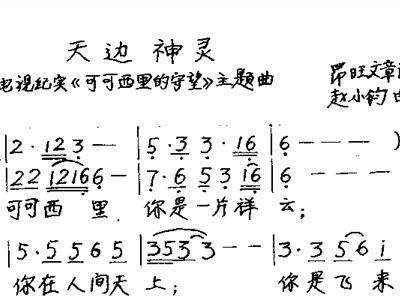 天边神灵
电视纪实《可可西里的守望》主题曲
昂旺文章
赵小钧
|2·123—|5·33·16|6———)
|2212166—|7·65316|6———
可可西里 你是一片祥云;
|5·5565|3533——|3·356i
你在人间天上; 你是飞来